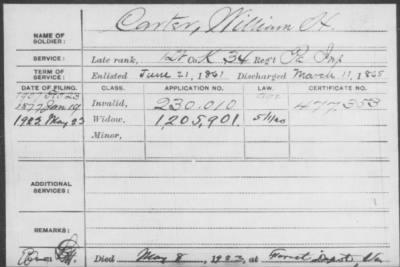 NAME OF SOLDIER: Carter, William H.
SERVICE: Late rank, Co. K 34 Reg't Inf
TERM OF SERVICE: Enlisted June 21, 1861 Discharged March 11, 1865
DATE OF FILING. CLASS. APPLICATION NO. LAW. CERTIFICATE NO.
1877 Jan 19 Invalid, 230.010 477,353
1923 May 23 Widow, 1,205,901. 5/1/20
Minor,
ADDITIONAL SERVICES:
REMARKS:
Died May 8, 1923, at Forest Depot, Va